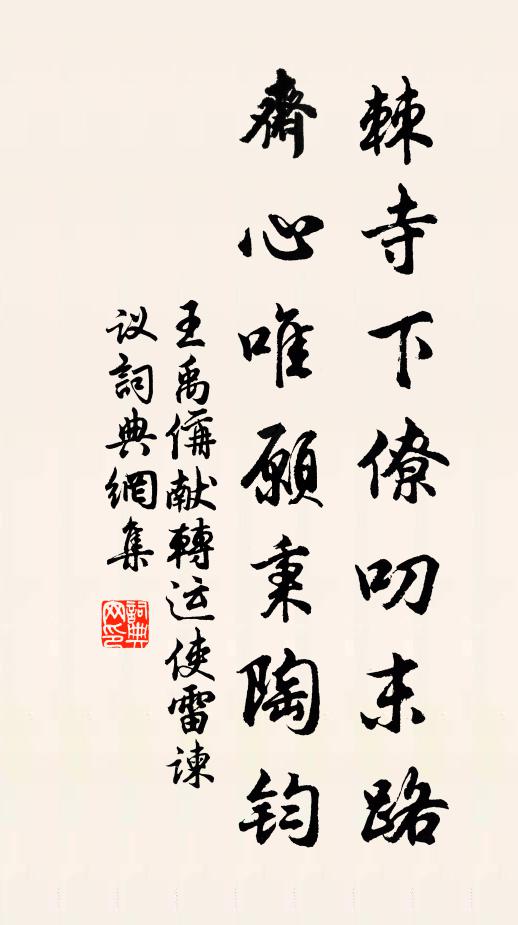 棘寺下僚叨末路
齋心唯願秉陶鈞
王禹偁献轉运使雷諫
议詞典網集
詞典
网印